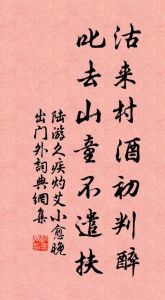 沽来村酒初判醉
叱去山童不遣扶
陆游久疾灼艾小愈晚
出门外詞典網集